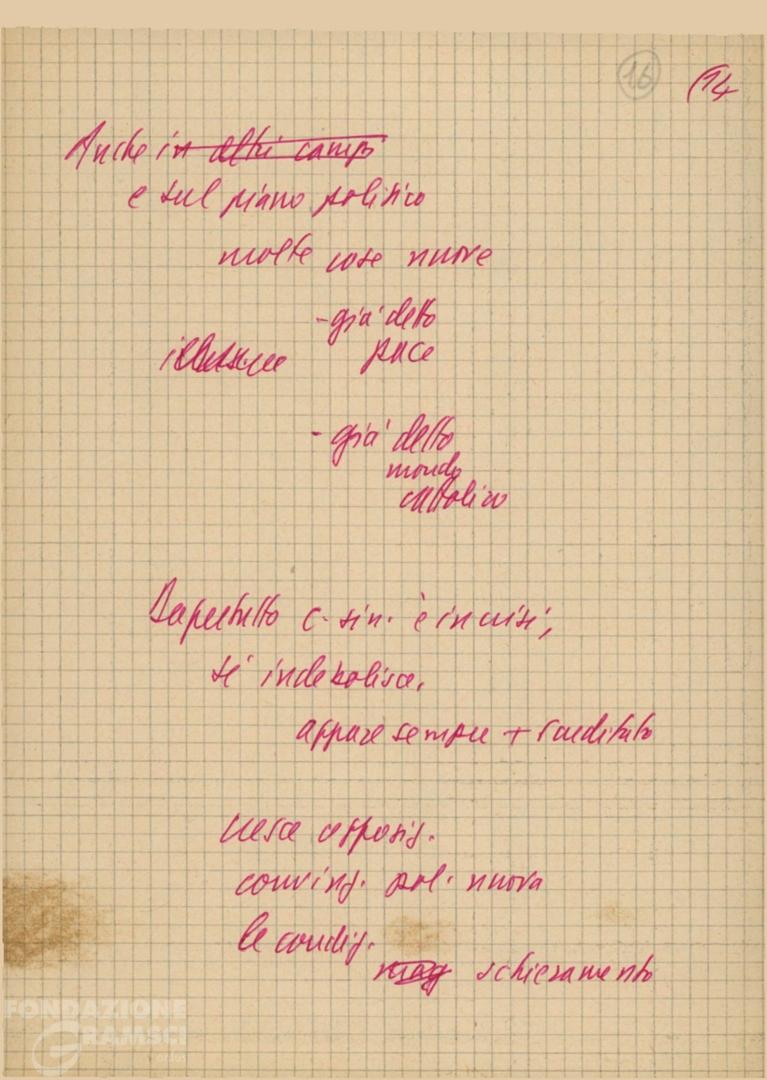 16 14
Anche in altri campi
e sul piano politico
molte cose nuove
- già detto
pace
- già detto
mondo
cattolico
Dapertutto c. sin. è in crisi,
si indebolisce,
appare sempre + screditato
cresce opposiz.
convinz. pol. nuova
le condiz.
magg schieramento
FONDAZIONE
GRAMSCI